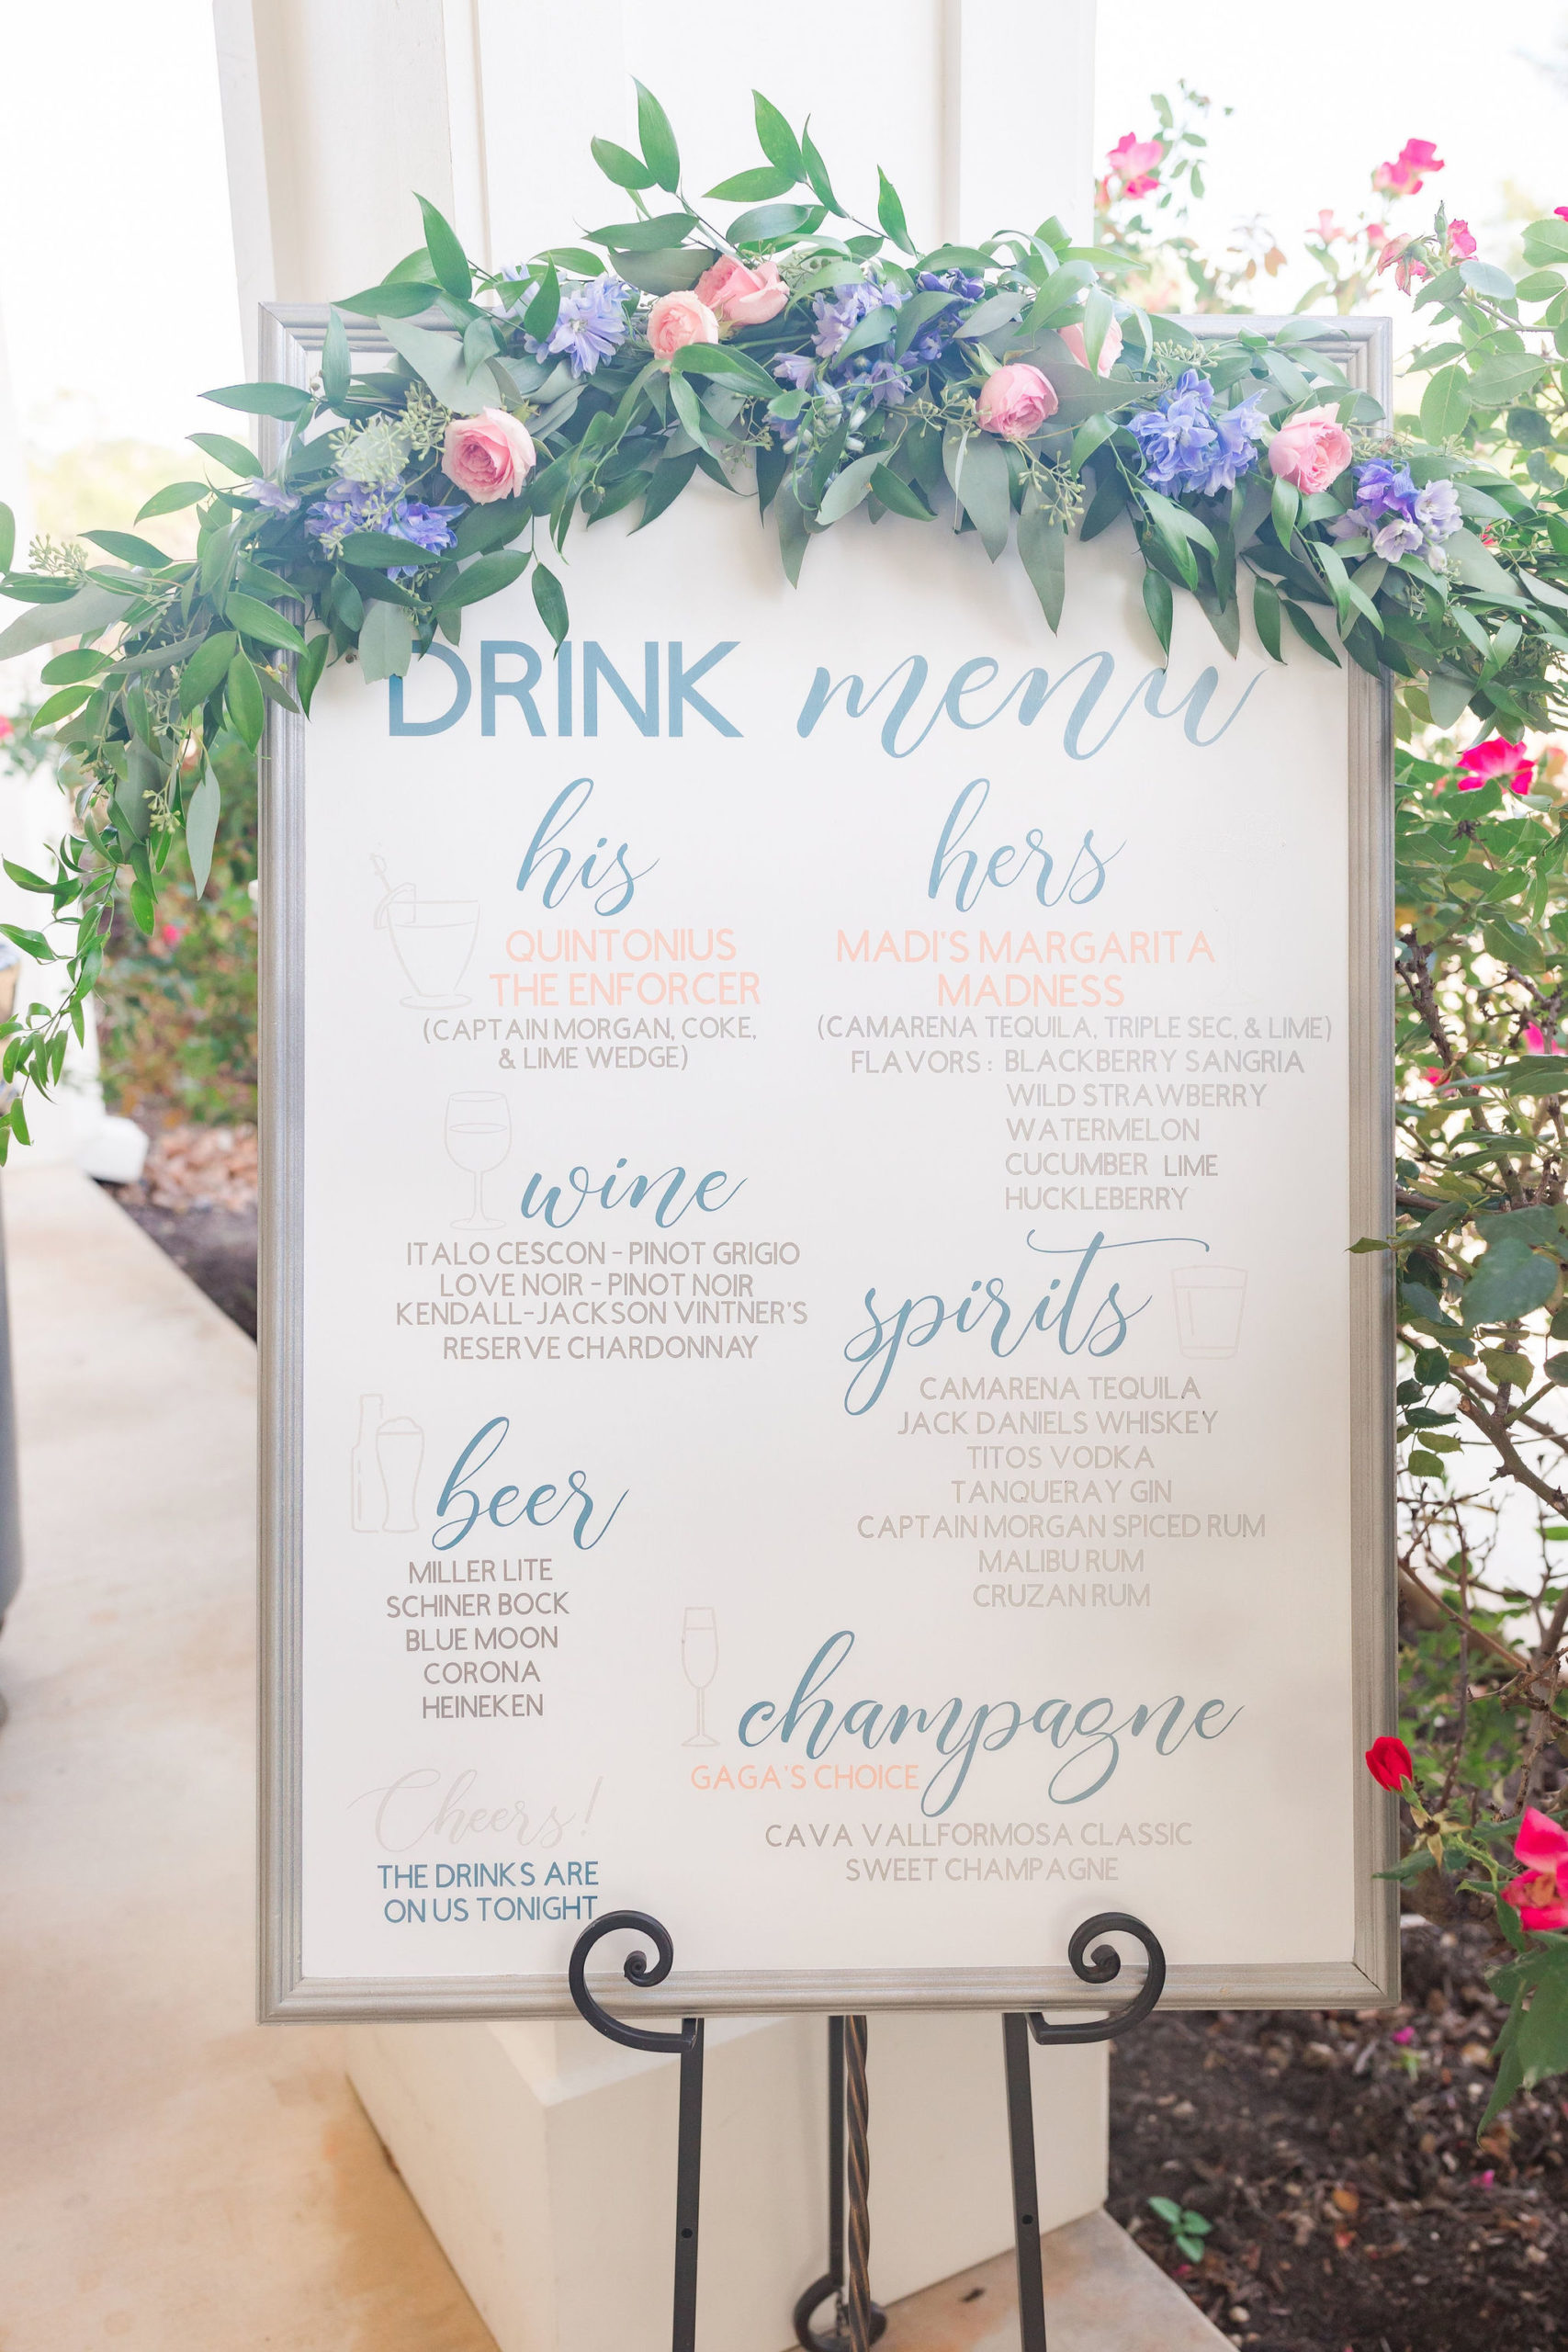 DRINK menu
his
QUINTONIUS
THE ENFORCER
(CAPTAIN MORGAN, COKE,
& LIME WEDGE)
hers
MADI'S MARGARITA
MADNESS
(CAMARENA TEQUILA, TRIPLE SEC, & LIME)
FLAVORS: BLACKBERRY SANGRIA
WILD STRAWBERRY
WATERMELON
CUCUMBER LIME
HUCKLEBERRY
wine
ITALO CESCON - PINOT GRIGIO
LOVE NOIR - PINOT NOIR
KENDALL-JACKSON VINTNER'S
RESERVE CHARDONNAY
spirits
CAMARENA TEQUILA
JACK DANIELS WHISKEY
TITOS VODKA
TANQUERAY GIN
CAPTAIN MORGAN SPICED RUM
MALIBU RUM
CRUZAN RUM
beer
MILLER LITE
SCHINER BOCK
BLUE MOON
CORONA
HEINEKEN
champagne
GAGA'S CHOICE
CAVA VALLFORMOSA CLASSIC
SWEET CHAMPAGNE
Cheers!
THE DRINKS ARE
ON US TONIGHT